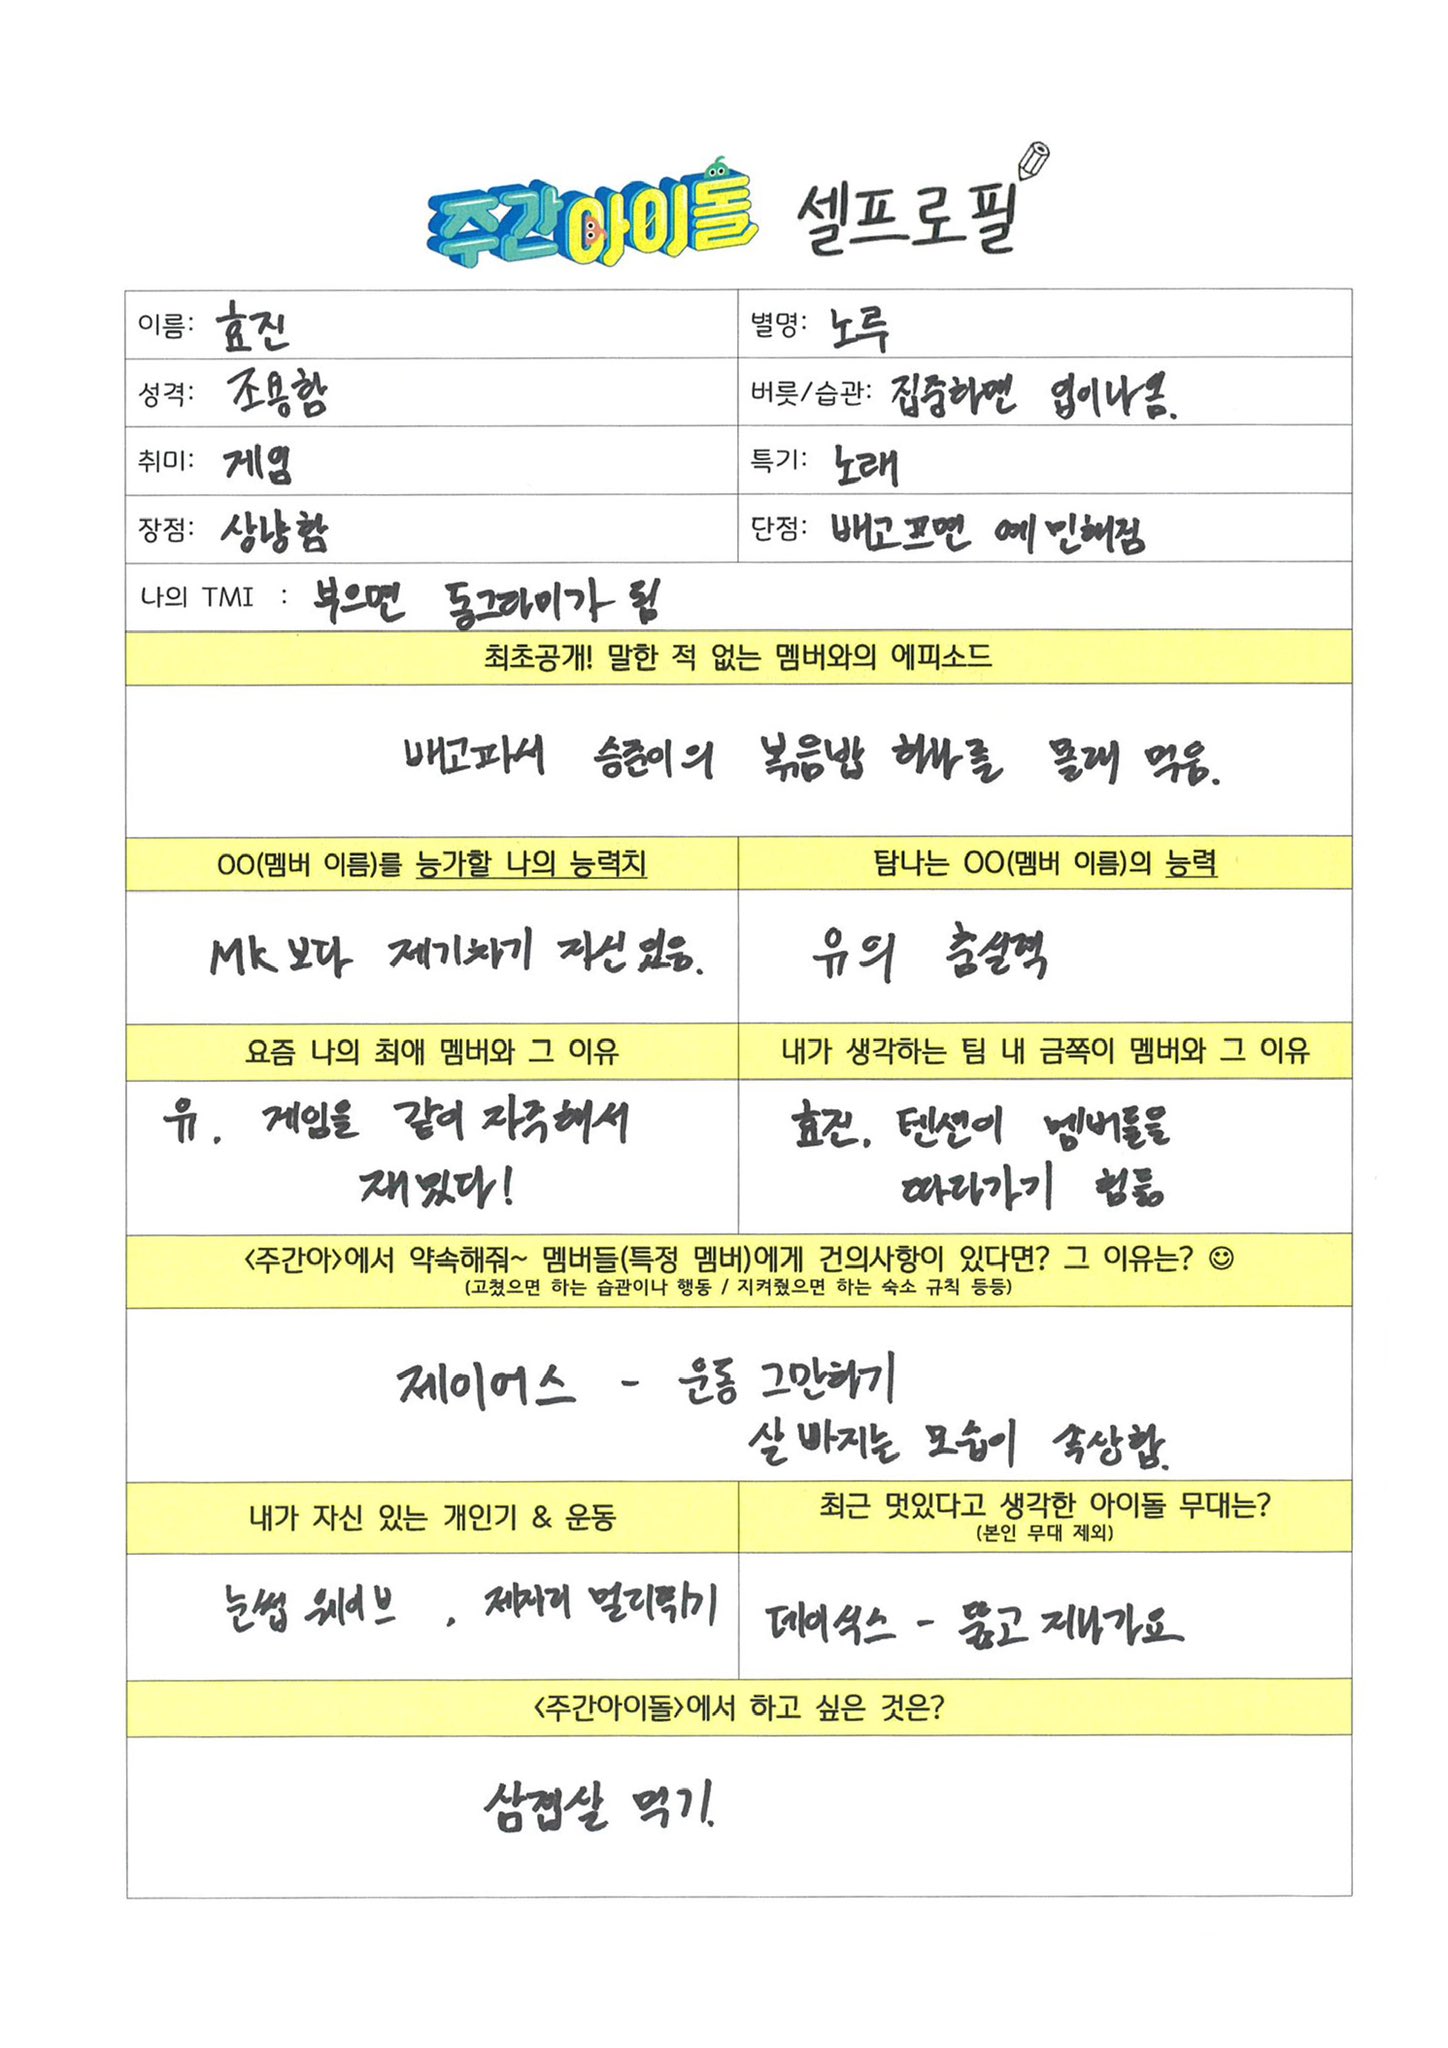 주간아이돌 셀프로필
이름: 효진
별명: 노루
성격: 조용함
버릇/습관: 집중하면 입이나옴.
취미: 게임
특기: 노래
장점: 상냥함
단점: 배고프면 예민해짐
나의 TMI : 부으면 동그라미가 됨
최초공개! 말한 적 없는 멤버와의 에피소드
배고파서 승준이의 볶음밥 하나를 몰래 먹음.
OO(멤버 이름)를 능가할 나의 능력치
탐나는 OO(멤버 이름)의 능력
MK보다 제기차기 자신있음.
유의 춤실력
요즘 나의 최애 멤버와 그 이유
내가 생각하는 팀 내 금쪽이 멤버와 그 이유
유. 게임을 같이 자주해서
재밌다!
효진. 텐션이 멤버들을
따라가기 힘듦
<주간아>에서 약속해줘~ 멤버들(특정 멤버)에게 건의사항이 있다면? 그 이유는? ☺
(고쳤으면 하는 습관이나 행동 / 지켜줬으면 하는 숙소 규칙 등등)
제이어스 - 운동 그만하기
살 빠지는 모습이 속상함.
내가 자신 있는 개인기 & 운동
최근 멋있다고 생각한 아이돌 무대는?
(본인 무대 제외)
눈썹 웨이브 , 제자리 멀리뛰기
데이식스 - 뚫고 지나가요
<주간아이돌>에서 하고 싶은 것은?
삼겹살 먹기.